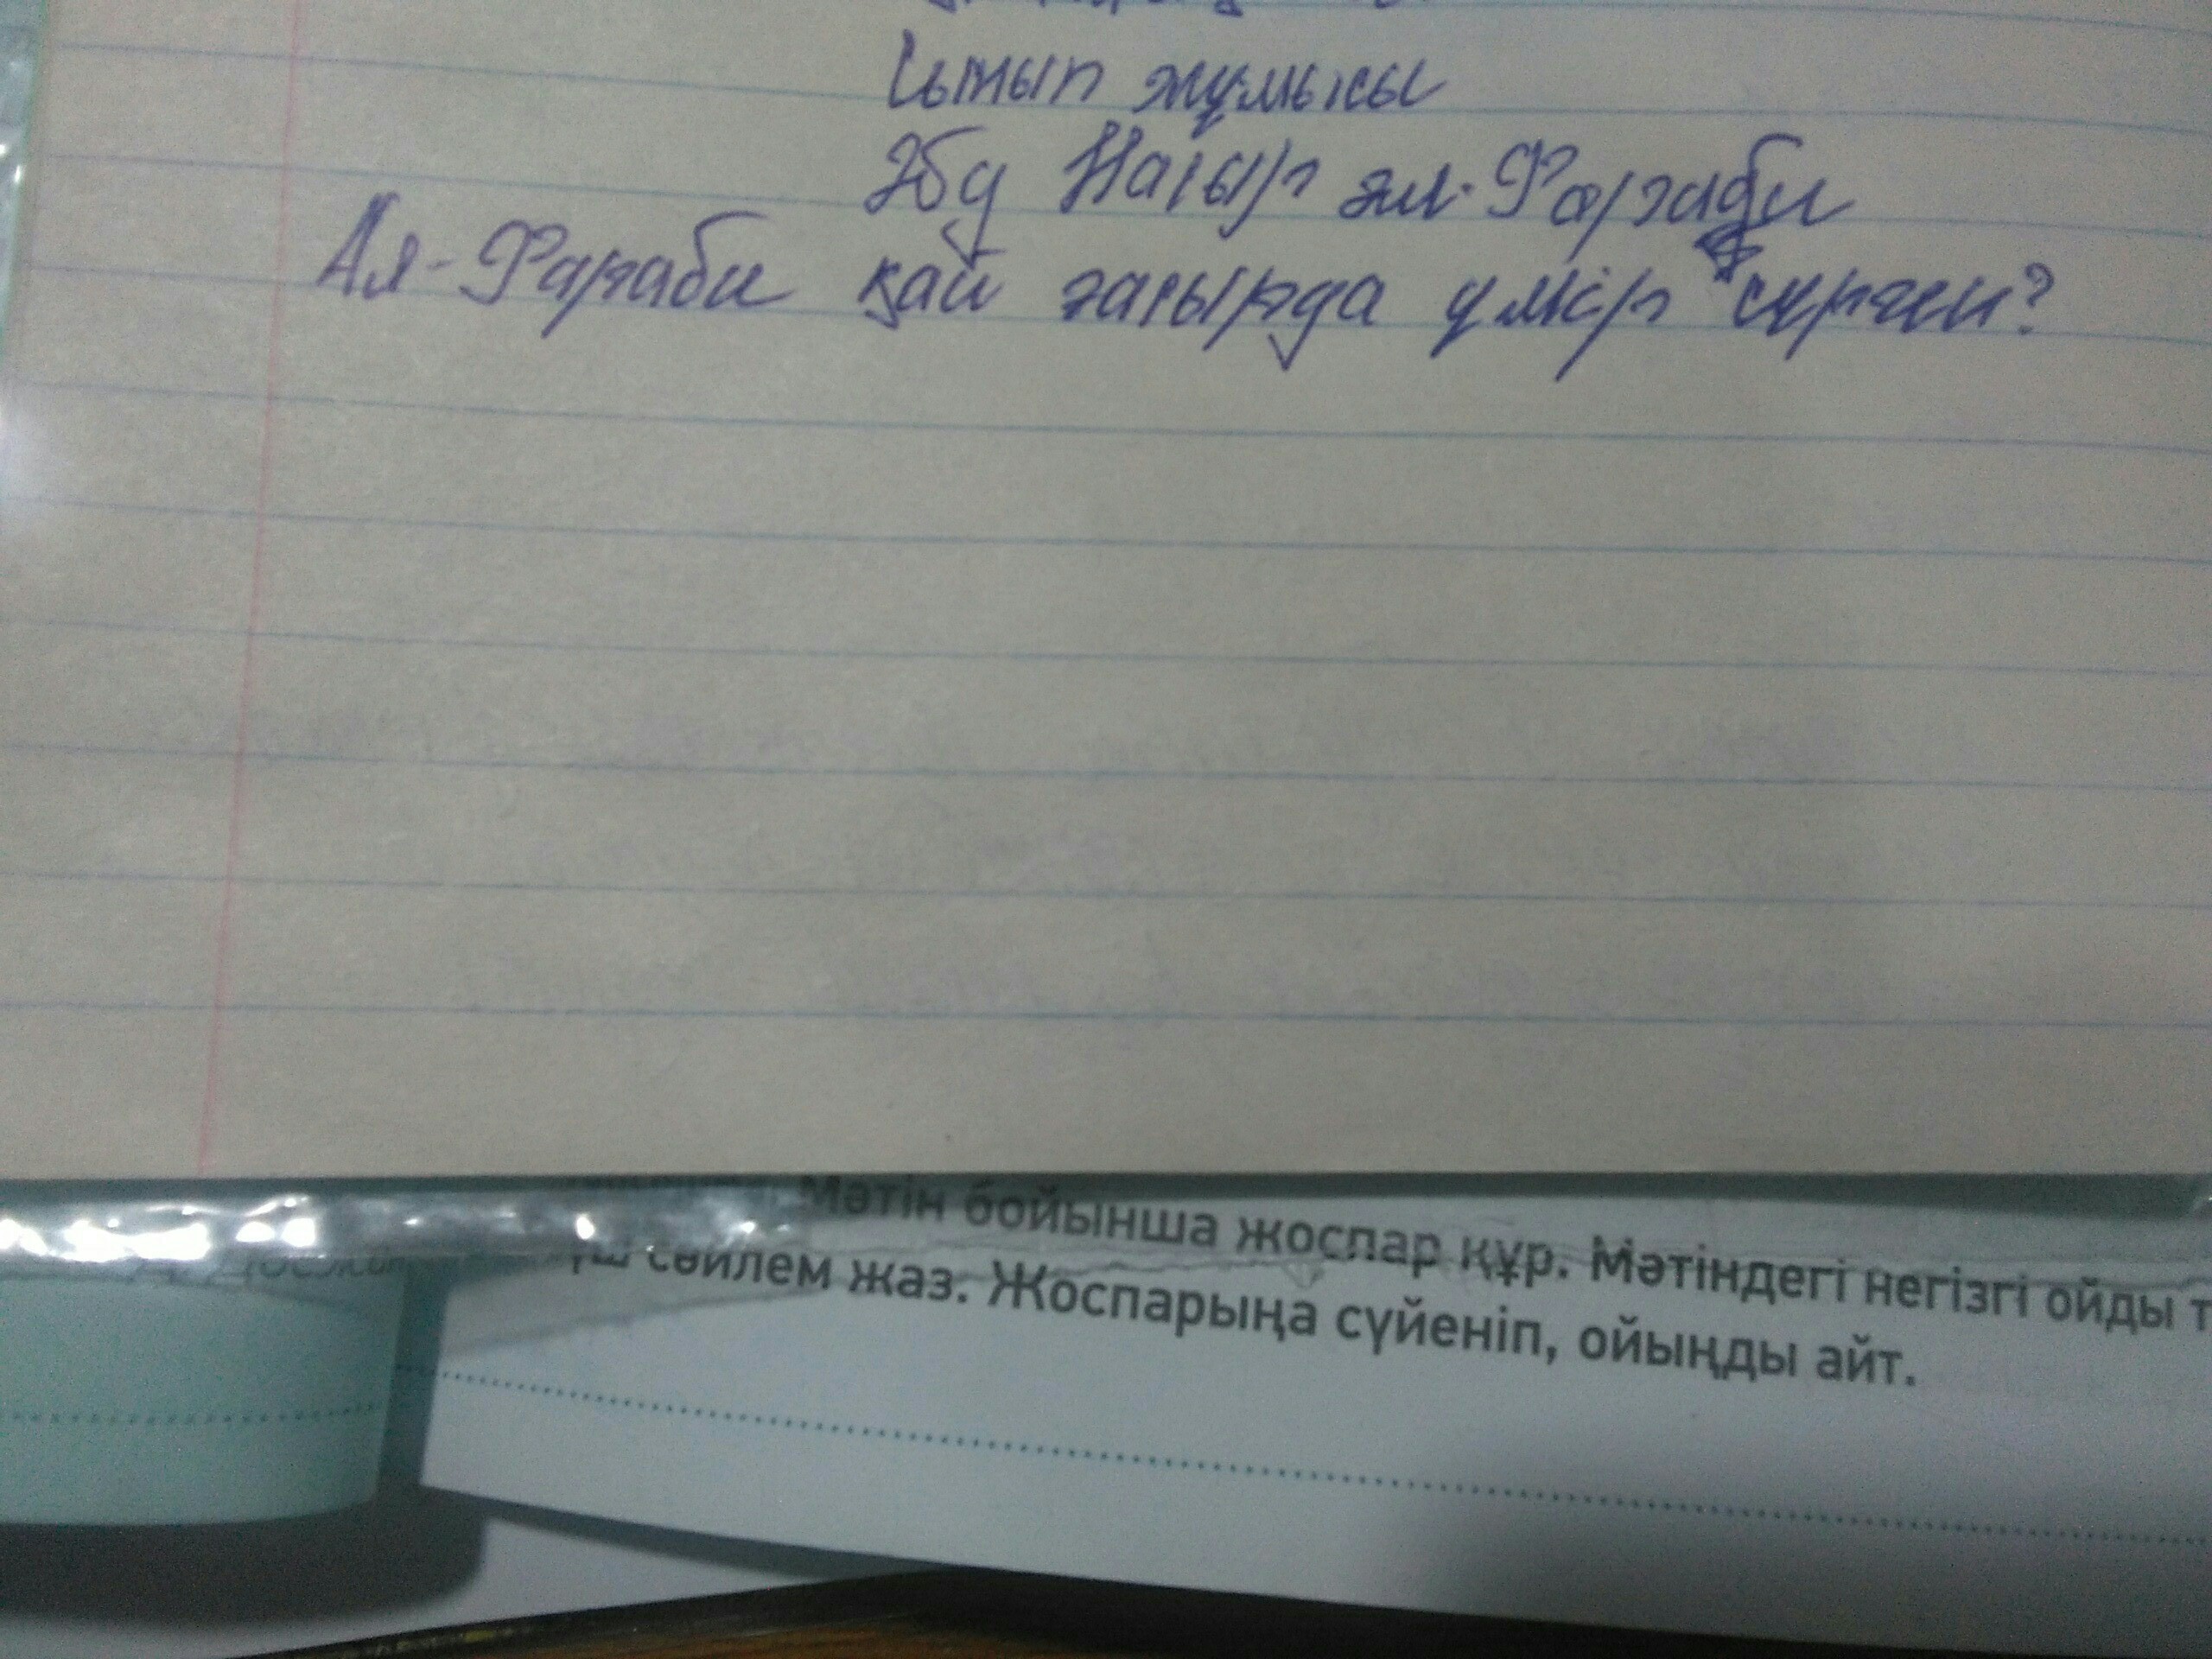 Сынып жұмысы
Әбу Насыр әл-Фараби
Ал-Фараби қай ғасырда үмір сүрген?
Мәтін бойынша жоспар құр. Мәтіндегі негізгі ойды
үш сөйлем жаз. Жоспарыңа сүйеніп, ойыңды айт.